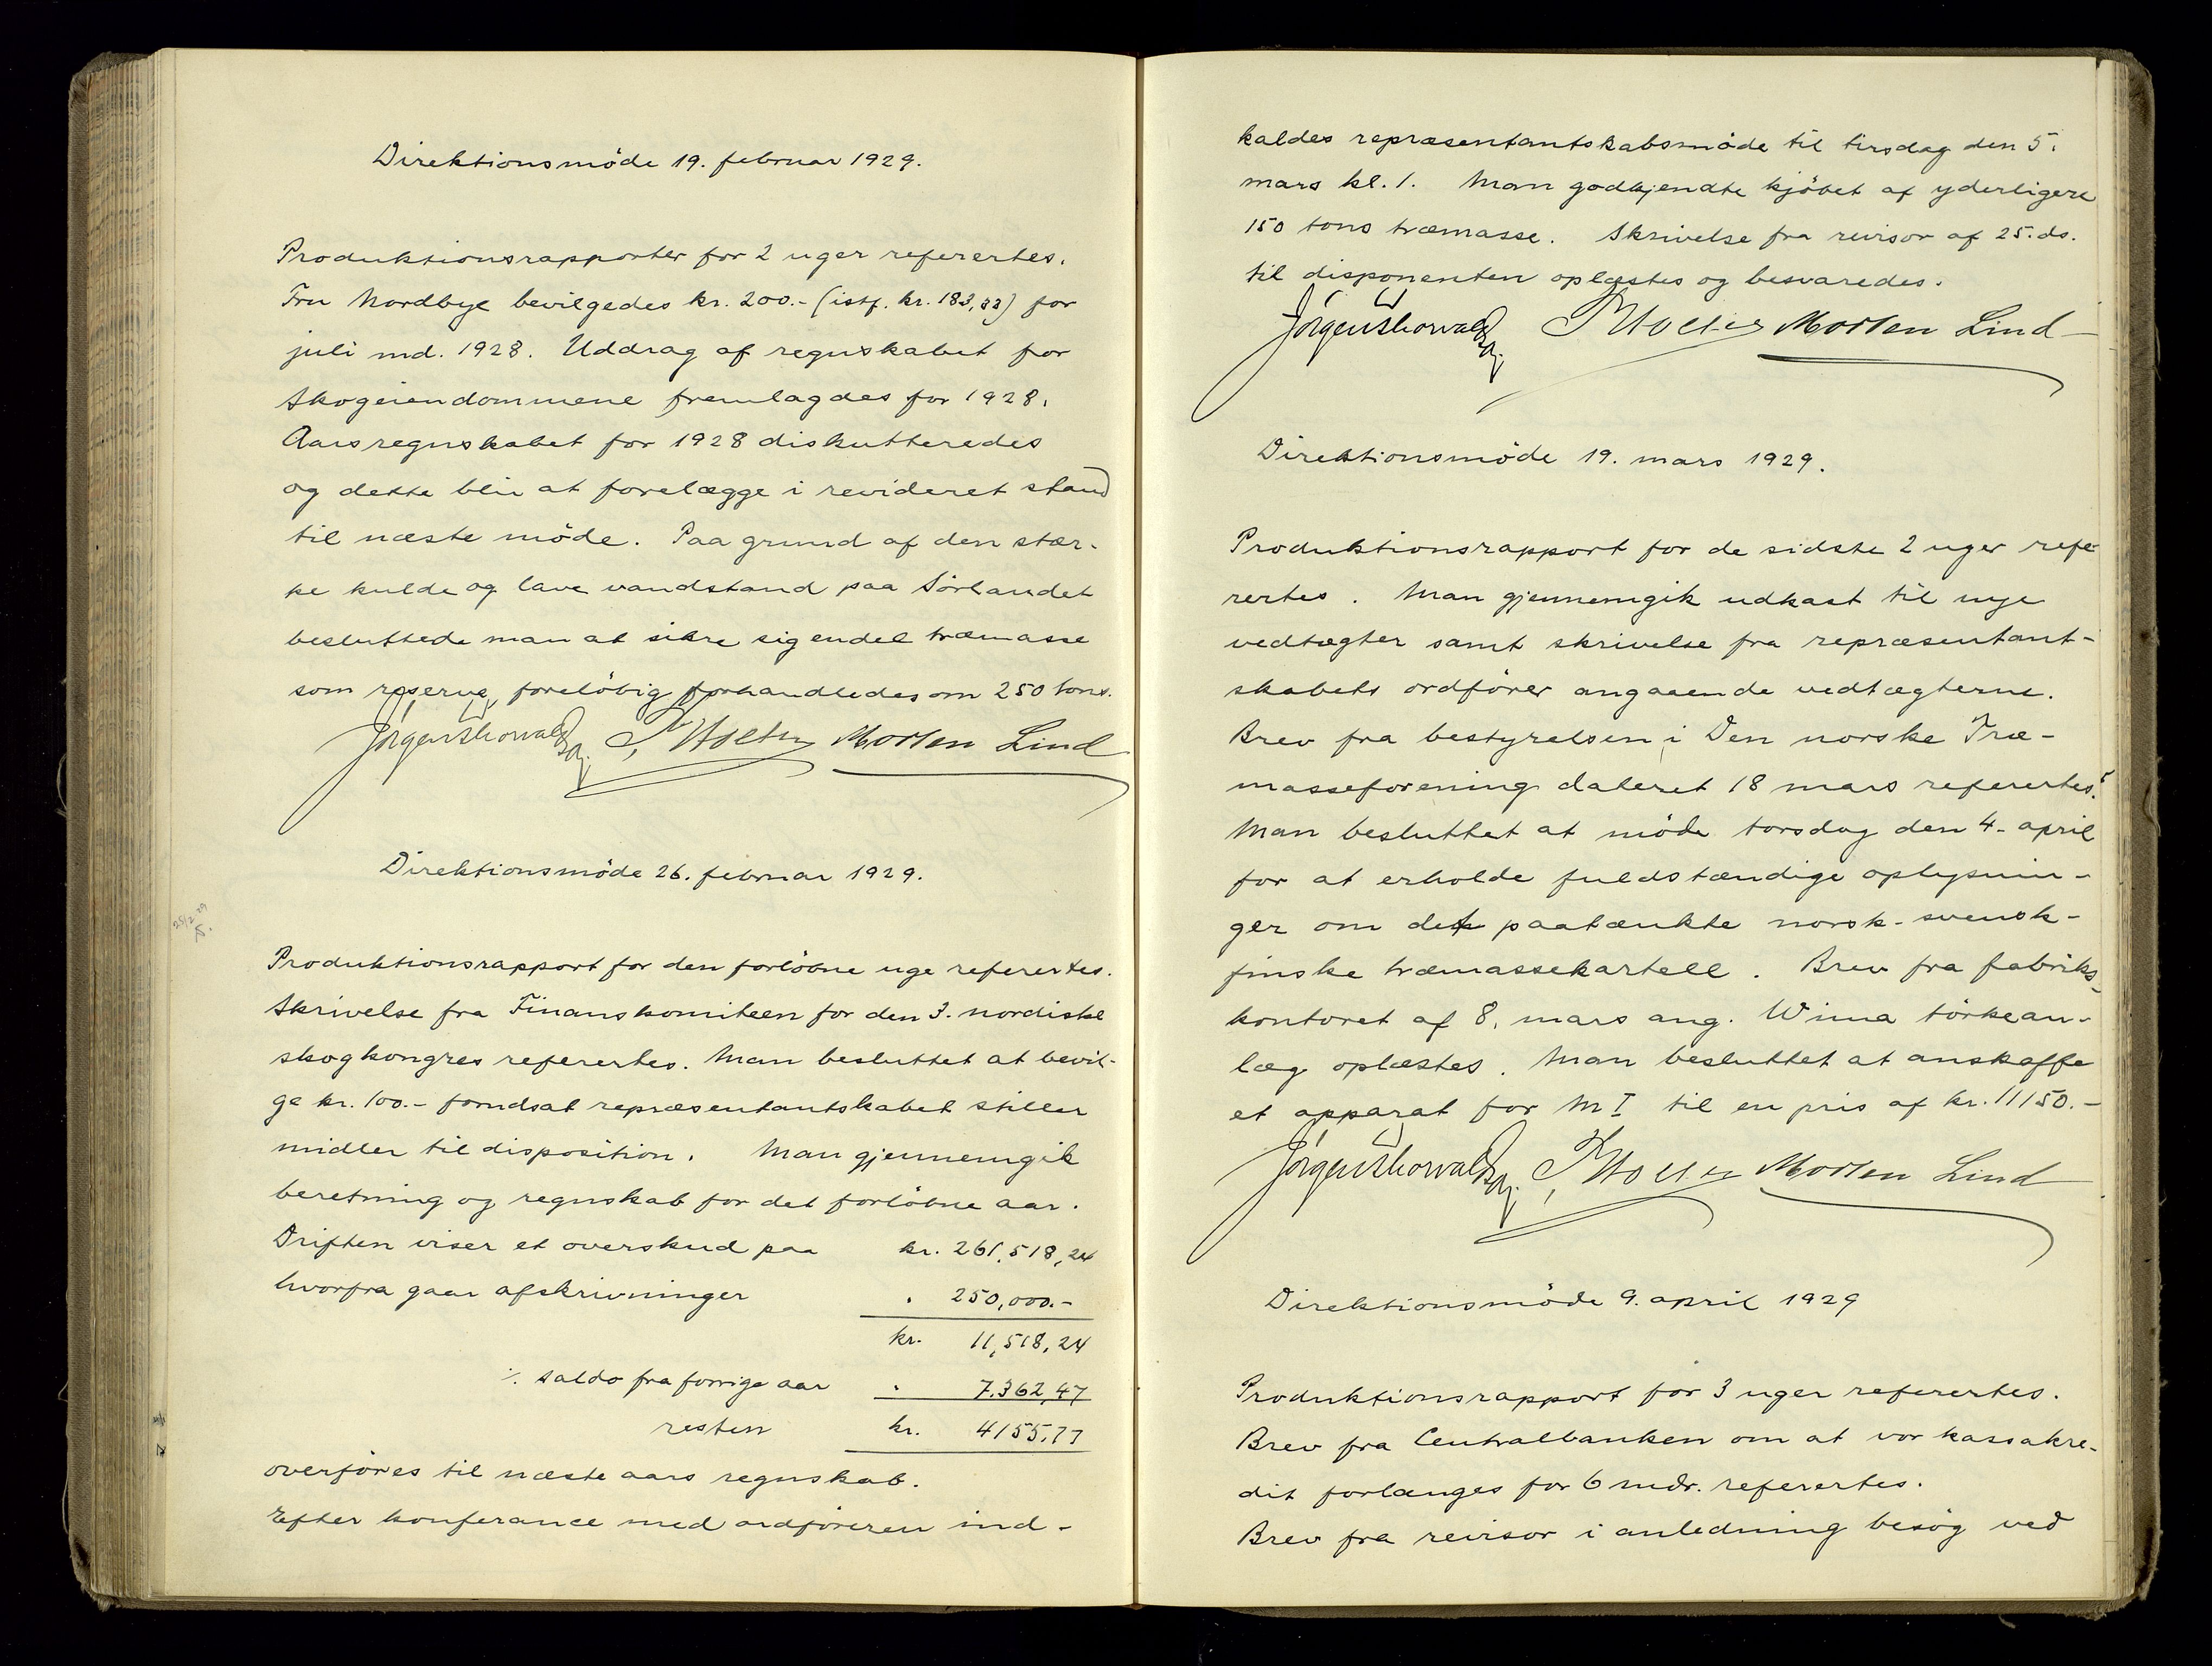 Direktionsmöde 19. februar 1929.
Produktionsrapporter for 2 uger refertes.
Fru Nordbye bevilgedes kr. 200.- (istf. kr. 183,33) for
juli md. 1928. Uddrag af regnskabet for
Skogeiendommene fremlagdes for 1928.
Aarsregnskabet for 1928 diskutteredes
og dette blir at forelægge i revideret stand
til næste möde. Paa grund af den stær-
ke kulde og lave vandstand paa Sörlandet
besluttede man at sikre sig endel træmasse
som reserve, forelöbig forhandledes om 250 tons.
Morten Lind
Direktionsmöde 26. februar 1929.
25/2 29
Produktionsrapport for den forlöbne uge referertes.
Skrivelse fra Finanskomiteen for den 3. nordiske
skogkongres referertes. Man besluttet at bevil-
ge kr. 100.- forudsat repræsentantskabet stiller
midler til disposition. Man gjennemgik
beretning og regnskab for det forlöbne aar.
Driften viser et overskud paa kr. 261,518,24
hvorfra gaar afskrivninger " 250,000.-
kr. 11,518,24
÷ saldo fra forrige aar " 7.362,47
resten kr. 4155.77
overföres til næste aars regnskab.
Efter konferance med ordföreren ind-
kaldes repræsentantskabsmöde til tirsdag den 5.
mars kl. 1. Man godkjendte kjöbet af yderligere
150 tons træmasse. Skrivelse fra revisor af 25. ds.
til disponenten oplæstes og besvaredes.
Morten Lind
Direktionsmöde 19. mars 1929.
Produktionsrapport for de sidste 2 uger refe-
rertes. Man gjennemgik udkast til nye
vedtægter samt skrivelse fra repræsentant-
skabets ordförer angaaende vedtægterne.
Brev fra bestyrelsen i Den norske Træ-
masseforening dateret 18 mars referertes.
Man besluttet at möde torsdag den 4. april
for at erholde fuldstændige oplysnin-
ger om det paatænkte norsk-svensk-
finske træmassekartell. Brev fra fabriks-
kontoret af 8. mars ang. Wima törkean-
læg oplæstes. Man besluttet at anskaffe
et apparat for M I til en pris af kr. 11150.-
Morten Lind
Direktionsmöde 9. april 1929
Produktionsrapport for 3 uger referertes.
Brev fra Centralbanken om at vor kassakre-
dit forlænges for 6 mdr. referertes.
Brev fra revisor i anledning besög ved